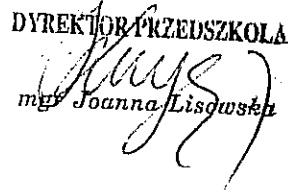 DYREKTOR PRZEDSZKOLA
mgr Joanna Lisowska